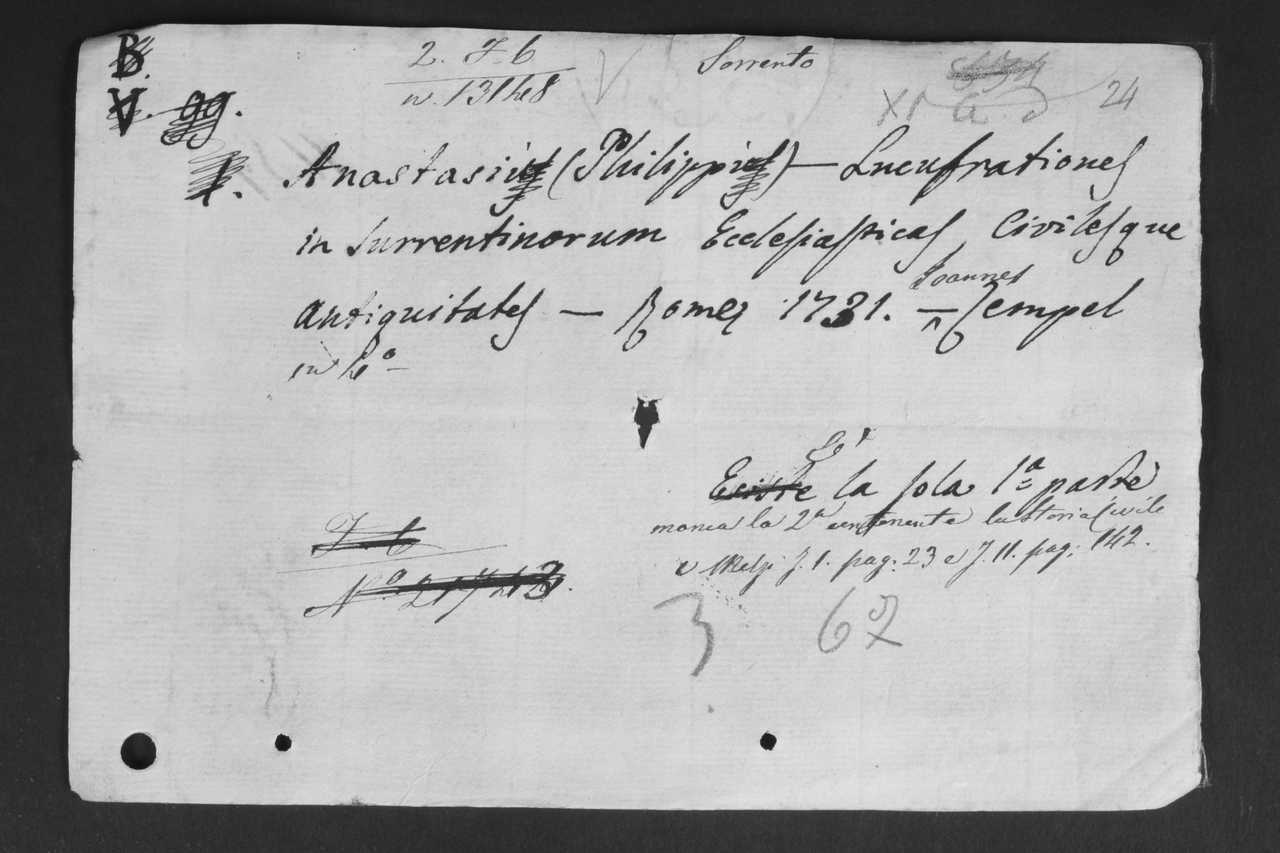 B.
V. gg.
1.
2. J. 6
Sorrento
XI a
24
Anastasius (Philippus) — Lucufrationes
in Surrentinorum Ecclesiasticas, Civilesque
antiquitates — Romæ 1731. — Joannes Zempel
in 4º
È
Esiste la sola 1ª parte
manca la 2ª contenente la storia Civile
pag. 23 e J. 11. pag. 142.
J 6
Nº
3
67